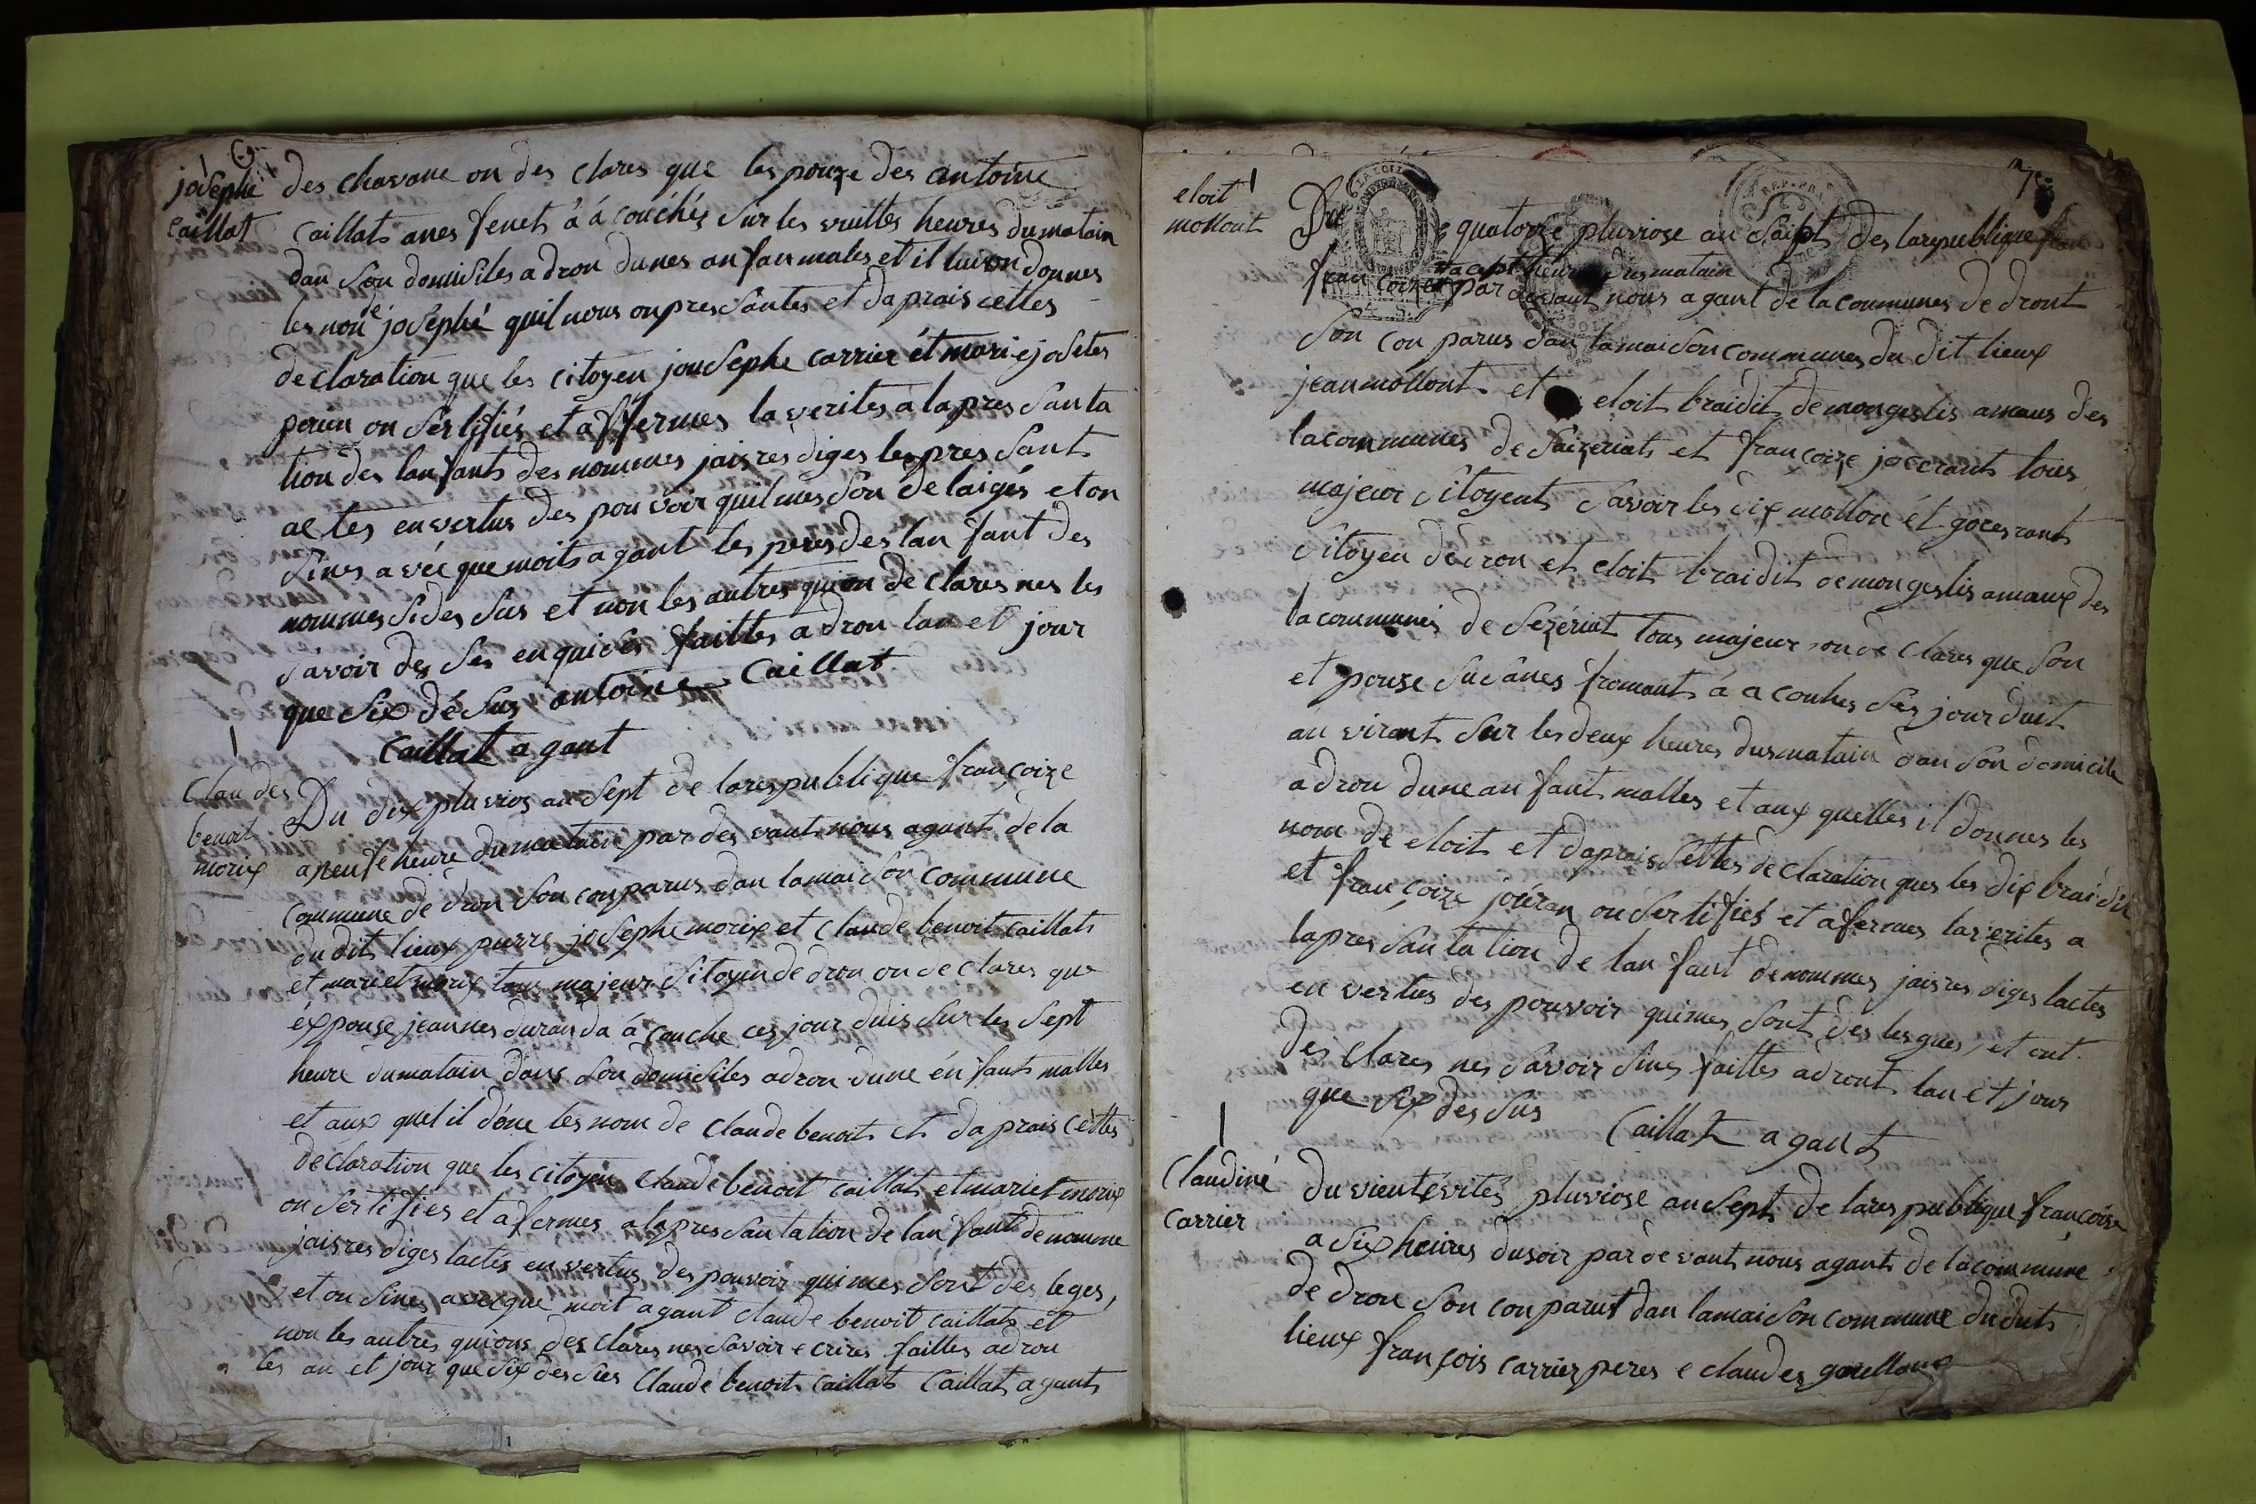 josephe
caillat
des chavane on des clares que les pouze des antoine
caillats anes fenet â á couchés sur les vuittes heures dumatain
dan son domisiles a dron dunes anfan males et il luion donnes
les non de josephé quil nous on pres santes et daprais cettes
declaration que les citoyen jouSephe carrier ét mari ejosetes
on sertifiés et affermes la verites a la pres santa
tion des lanfants des nommes jais res diges les pres sant
actes en vertus des pou voir quil mes son de laigés et on
sines avéc que moits agant les peres des lan fant des
nommes sides sus et non les autres quion de clares nes les
savoir des ses enquices faittes a dron lan et jour
que six dé sus antoine caillat
caillat agant
Clau des
benoit
morix
Du dix pluvios an sept de la respublique françoize
a neufe heure dumatain par des vant nous agant de la
commune de dron son conparus dan lamaison commune
du dit lieux pierre josephe morix et claude benoit caillats
et mariet morix tous majeur sitoyen de dron on de clares que
expouse jeannes duran da á couche ces jour duis sur les sept
heure dumatain dans son domisiles adron dune énfants malles
et aux quel il done les nom de claude benoits et daprais cettes
déclaration que les citoyen claude benoit caillats et mariet morix
on sertifies et afermes a la pres santation de lanfant denomme
jais res diges lactes en vertus des pouvoir qui mes sont des leges,
et on sines avecque moit agant claude benoit caillats et
non les autres quions des clares nes savoir ecrires faittes adron
les an et jour que six des sus Claude benoits caillats caillats agants
eloit
mollont
7e
Du quatorze pluviose an saipt des larepublique
francoize a cept heures dus matain par devant nous agant de la communes de dront
son conparus dan lamaison communes du dit lieux
jean mollont et eloit braidit demongeslis amaus des
lacommunes de saizeriats et francoize jocerants tous
majeur sitoyents savoir les dix mollon ét goces rants
sitoyen de dron et eloit braidit demongeslis amaux des
la communes de sezériat tous majeur on de clares que son
et pouze susanes fromants á a couhes ses jour duit
an virant sur les deux heures dusmatain dan son domicile
a dron dune an fant malles et aux quelles il donnes les
nom de eloit et daprais settes declaration ques les dix braidit
et françoize joúran on sertifiés et afermes laverites a
la pres santation de lan fant denommes jais res diges lactes
en vertus des pouvoir quimes sont des legues, et ont
des clares nes savoir sines faittes adront lan et jour
que six des sus Caillat agant
Claudiné
carrier
du vientevités pluviose an sept de la respublique françoise
a six heures dusoir par de vant nous agant de lacommune
de dron son conparut dan lamaison commune dudits
lieux françois carrier peres e claudes